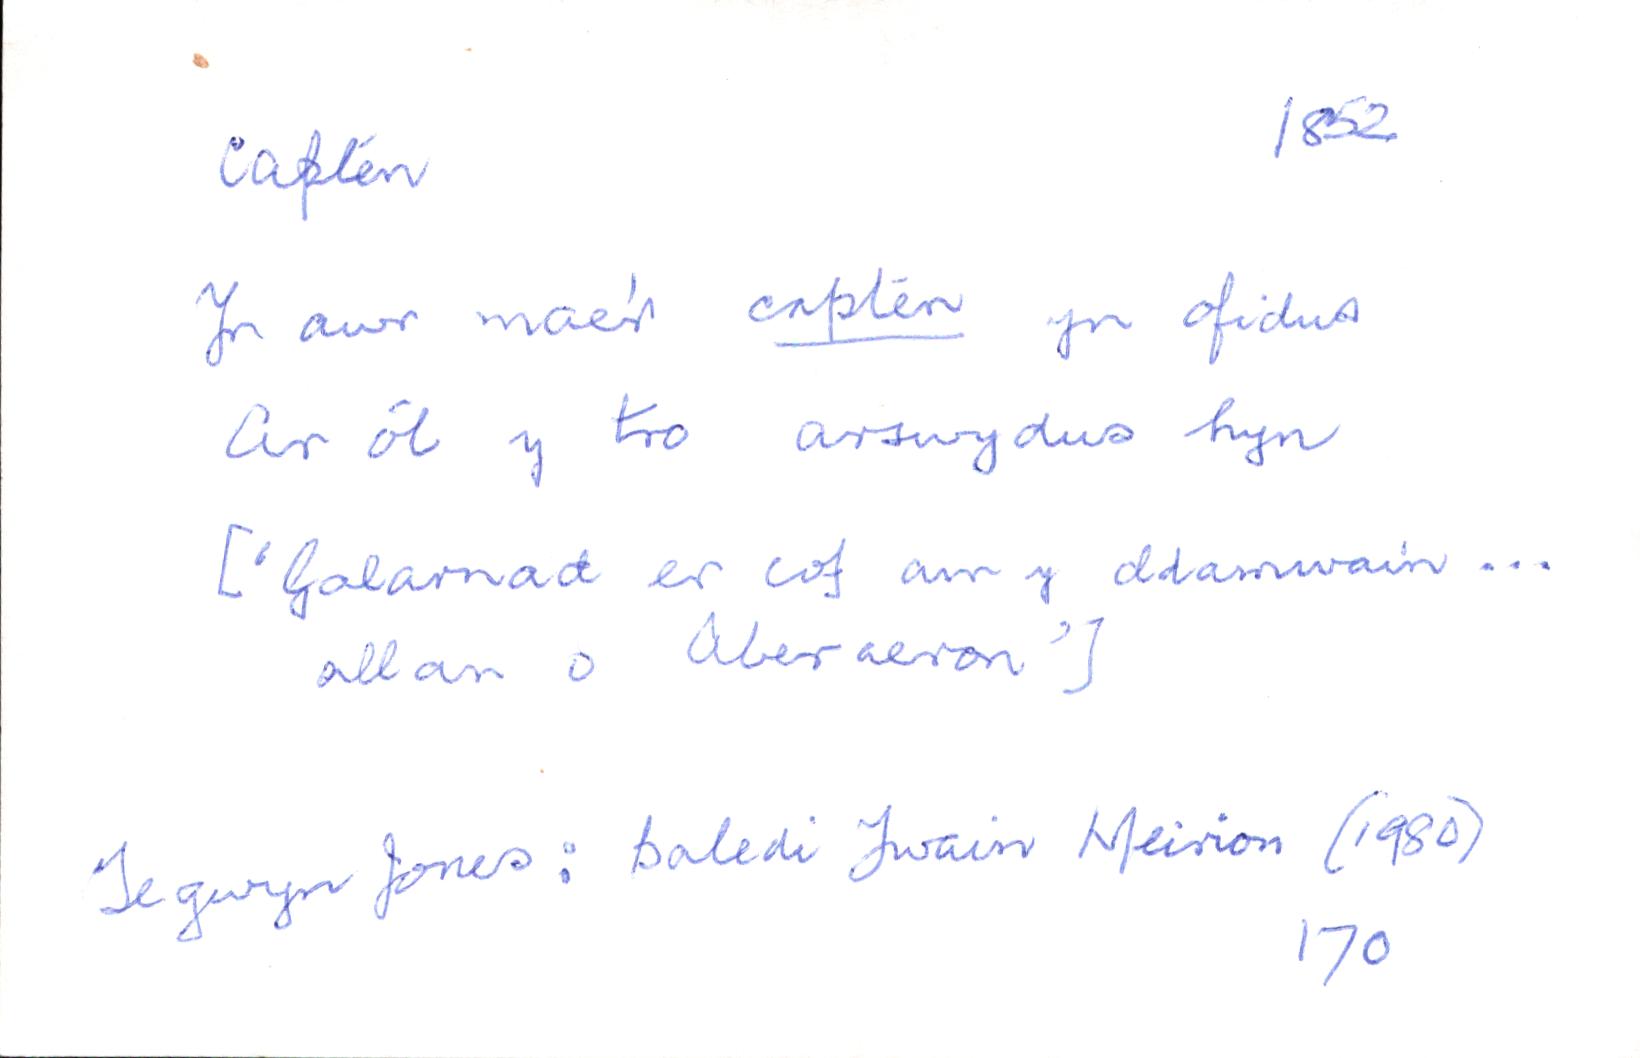 Captên 1852
Yn awr mae'r captên yn ofidus
Ar ôl y tro arswydus hyn
['Galarnad er cof am y ddamwain ...
allan o Aberaeron']
Tegwyn Jones: Baledi Ywain Meirion (1980)
170